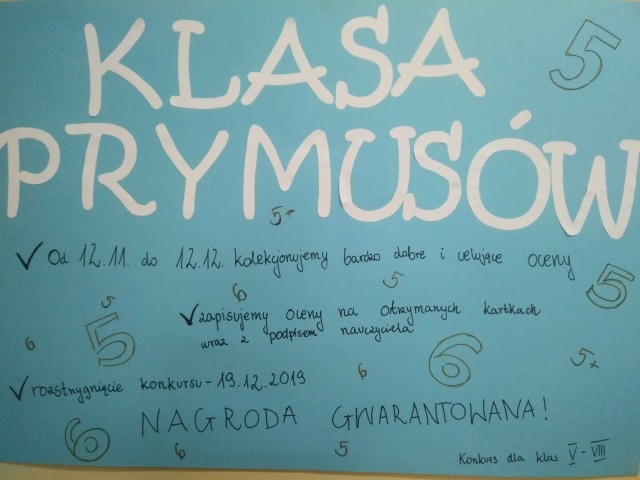 KLASA
5
PRYMUSÓW
5+
✓ Od 12.11. do 12.12. kolekcjonujemy bardzo dobre i celujące oceny
6
5
5
5
✓ zapisujemy oceny na otrzymanych kartkach
wraz z podpisem nauczyciela
5
6
6
5+
✓ rozstrzygnięcie konkursu - 19.12.2019
6
NAGRODA GWARANTOWANA!
6
6
5
Konkurs dla klas V - VIII